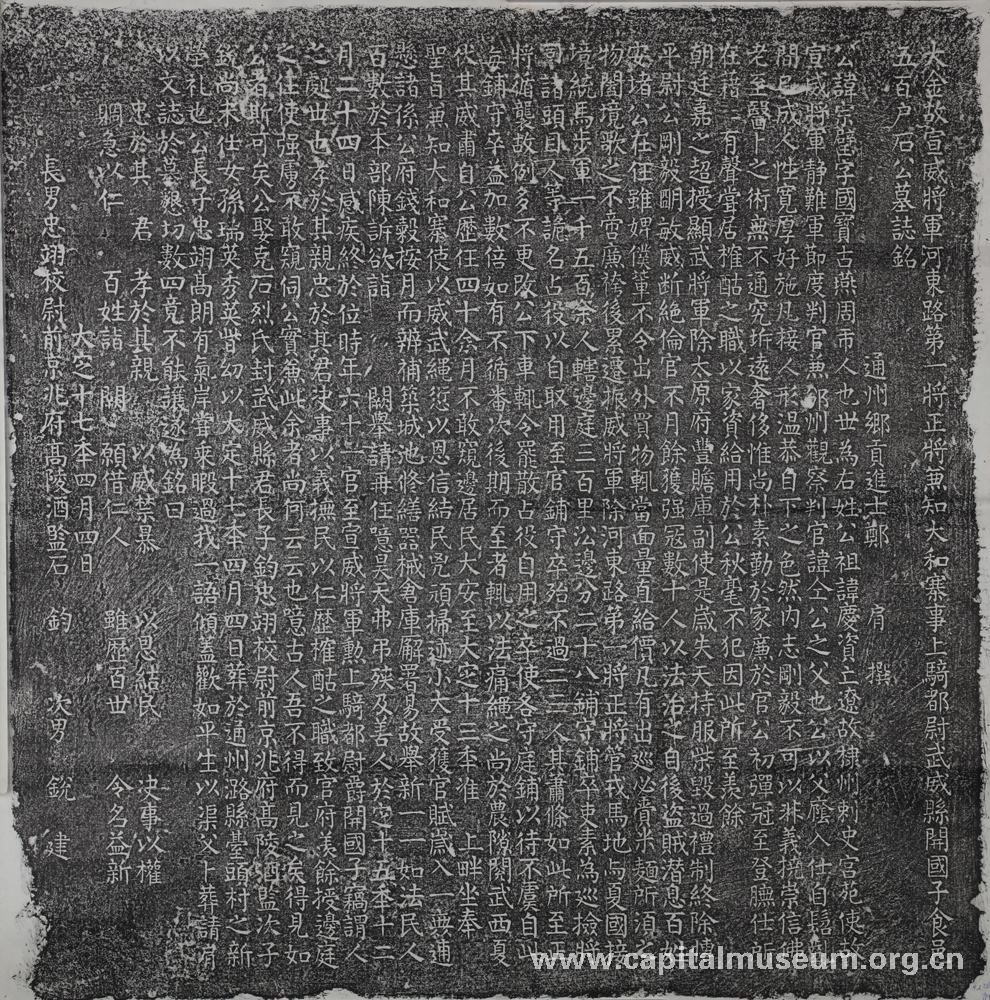 大金故宣威將軍河東路第一將正將兼知大和寨事上騎都尉武威縣開國子食邑
五百户石公墓誌銘
通州鄉貢進士鄭 肩 撰
公諱宗璧字國寶古燕周市人也世為右姓公祖諱慶資亡遼故棣州刺史宮苑使故
宣威將軍静難軍節度判官兼邠州觀察判官諱仝公之父也公以父廕入仕自髫
間已成人性寬厚好施凡接人形温恭自下之色然内志剛毅不可以非義撓崇信佛
老至醫卜之術無不通究斥遠奢侈惟尚朴素勤於家廉於官公初彈冠至登膴仕所
在藉有聲嘗居榷酤之職以家資給用於公秋毫不犯因此所至羨餘
朝廷嘉之超授顯武將軍除太原府豐贍庫副使是歲失天持服柴毁過禮制終除
平尉公剛毅明敏威断絶倫官不月餘獲强冠數十人以法治之自後盗賊潜息百姓
安堵公在任雖婢僕軰不令出外買物輒當面量直給價凡有出巡必賫米麵所湏之
物闔境歌之不啻廣袴後累遷振威將軍除河東路第一將正將管戎馬地与夏國接
境統馬步軍一千五百余人轄邊庭三百里㳂邊分二十八鋪守鋪卒吏素為巡撿將
司諸頭目人等詭名占役以自取用至官鋪守卒殆不過二三人其蕭條如此所至正
將循襲故例多不更改公下車輒令罷散占役自用之卒使各守庭鋪以待不虞自此
每鋪守卒益加數倍如有不循番次後期而至者輒以法痛繩之尚於農隙閱武西夏
伏其威肅自公歷任四十余月不敢窺邊居民大安至大定十三年准 上畔坐奉
聖旨兼知大和寨使以威武繩愆以恩信結民兇頑掃迹小大受獲官賦歲入一無逋
懸諸係公府錢穀按月而辨補築城池修繕器械倉庫廨署易故舉新一一如法民人
百數於本部陳訴欲詣 闕舉請再任噫昊天弗弔殀及善人於定十五年十二
月二十四日感疾終於位時年六十一官至宣威將軍勲上騎都尉爵開國子竊謂人
之處世也孝於其親忠於其君決事以義撫民以仁歷榷酤之職致官府羨餘授邊庭
之任使强虜不敢窺伺公實兼此余者尚何云云也噫古人吾不得而見之矣得見如
公者斯可矣公娶克石烈氏封武威縣君長子鈞忠翊校尉前京兆府髙陵酒監次子
銳尚未仕女孫瑞英秀英皆幼以大定十七年四月四日葬於通州潞縣臺頭村之新
塋禮也公長子忠翊髙朗有氣岸嘗乘暇過我一語傾蓋歡如平生以渠父卜葬請肩
以文誌於墓懇切數四竟不能讓遂為銘曰
忠於其 君 孝於其親 以威禁暴 以恩結民 决事以權
賙急以仁 百姓詣 闕 願借仁人 雖歷百世 令名益新
大定十七年四月四日
長男忠翊校尉前京兆府髙陵酒監石 鈞 次男 銳 建
www.capitalmuseum.org.cn